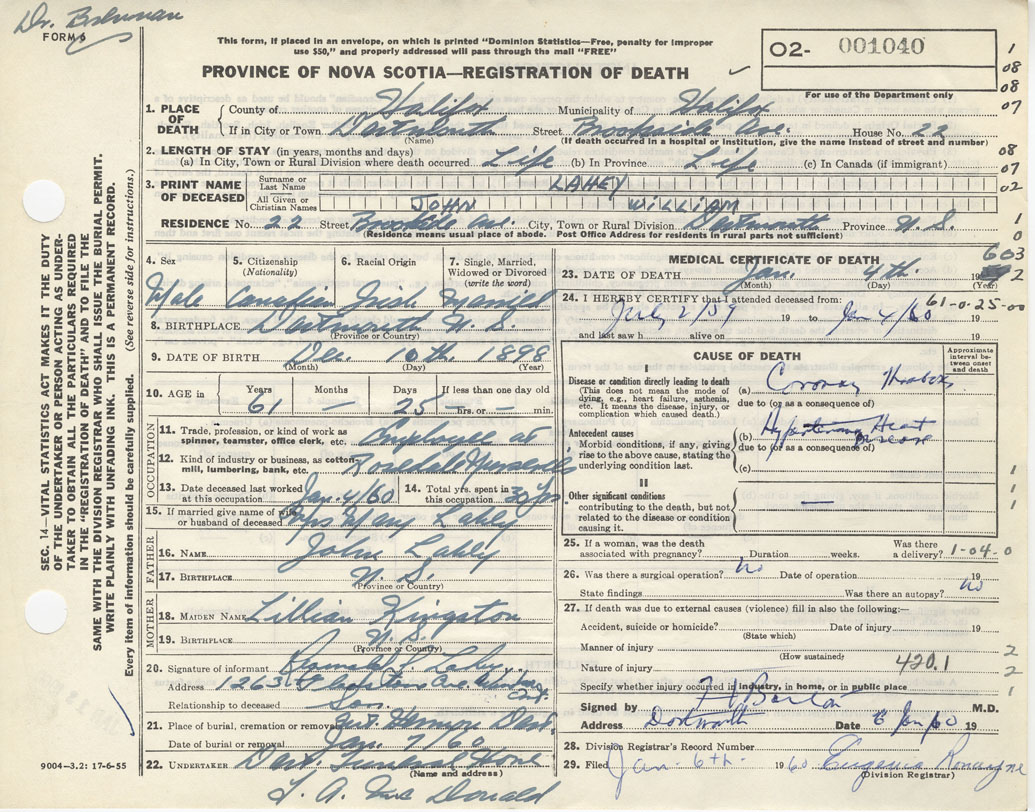 Dr. Brennan
FORM 6
This form, if placed in an envelope, on which is printed "Dominion Statistics—Free, penalty for improper
use $50," and properly addressed will pass through the mail "FREE"
PROVINCE OF NOVA SCOTIA—REGISTRATION OF DEATH
02- 001040
For use of the Department only
1
08
08
07
08
07
02
1
0
603
1. PLACE OF DEATH County of Halifax Municipality of Halifax
If in City or Town Dartmouth Street Brookside Ave. House No. 22
(Name) (If death occurred in a hospital or institution, give the name instead of street and number)
2. LENGTH OF STAY (in years, months and days)
(a) In City, Town or Rural Division where death occurred Life (b) In Province Life (c) In Canada (if immigrant)
3. PRINT NAME OF DECEASED Surname or Last Name LAHEY
All Given or Christian Names JOHN WILLIAM
RESIDENCE No. 22 Street Brookside Ave. City, Town or Rural Division Dartmouth Province N.S.
(Residence means usual place of abode. Post Office Address for residents in rural parts not sufficient)
4. Sex 5. Citizenship (Nationality) 6. Racial Origin 7. Single, Married, Widowed or Divorced (write the word)
Male Canadian Irish Married
8. BIRTHPLACE Dartmouth N.S.
(Province or Country)
9. DATE OF BIRTH Dec. 10th 1898
(Month) (Day) (Year)
10. AGE in Years Months Days If less than one day old
61 — 25 — hrs. or — min.
OCCUPATION
11. Trade, profession, or kind of work as spinner, teamster, office clerk, etc. Employee at
12. Kind of industry or business, as cotton-mill, lumbering, bank, etc. Rosedale Nurseries
13. Date deceased last worked at this occupation Jan. 4/60 14. Total yrs. spent in this occupation 30 yrs
15. If married give name of wife or husband of deceased Mrs Mary Lahey
FATHER
16. NAME John Lahey
17. BIRTHPLACE N.S.
(Province or Country)
MOTHER
18. MAIDEN NAME Lillian Kingston
19. BIRTHPLACE N.S.
(Province or Country)
20. Signature of informant Lahey
Address 1263 Ave. Ont.
Relationship to deceased Son.
21. Place of burial, cremation or removal Mt. Hermon Dart.
Date of burial or removal Jan. 7/60
22. UNDERTAKER Dart. Funeral Home
(Name and address)
Mac Donald
MEDICAL CERTIFICATE OF DEATH
23. DATE OF DEATH Jan. 4th. 19
(Month) (Day) (Year)
24. I HEREBY CERTIFY that I attended deceased from: 61-0-25-00
July 2/59 19 to Jan 4/60 19
and last saw h alive on 19
CAUSE OF DEATH
Approximate interval between onset and death
I
Disease or condition directly leading to death
(This does not mean the mode of dying, e.g., heart failure, asthenia, etc. It means the disease, injury, or complication which caused death.)
(a) Coronary Thrombosis
due to (or as a consequence of)
Antecedent causes
Morbid conditions, if any, giving rise to the above cause, stating the underlying condition last.
(b) Hypertensive Heart Disease
due to (or as a consequence of)
(c)
II
Other significant conditions
contributing to the death, but not related to the disease or condition causing it.
—
1
1
1
25. If a woman, was the death associated with pregnancy? Duration weeks. Was there a delivery? 1-04-0
26. Was there a surgical operation? no Date of operation 19
State findings Was there an autopsy? no
27. If death was due to external causes (violence) fill in also the following:—
Accident, suicide or homicide? Date of injury 19
(State which)
Manner of injury 2
(How sustained)
Nature of injury 420.1 2
Specify whether injury occurred in industry, in home, or in public place 1
Signed by M.D.
Address Dartmouth Date 6 Jan 60 19
28. Division Registrar's Record Number
29. Filed Jan. 6th. 1960 Eugenia Ronayne
(Division Registrar)
9004—3.2: 17-6-55
SEC. 14—VITAL STATISTICS ACT MAKES IT THE DUTY
OF THE UNDERTAKER OR PERSON ACTING AS UNDER-
TAKER TO OBTAIN ALL THE PARTICULARS REQUIRED
IN THE "REGISTRATION OF DEATH" AND FILE THE
SAME WITH THE DIVISION REGISTRAR WHO SHALL ISSUE THE BURIAL PERMIT.
WRITE PLAINLY WITH UNFADING INK. THIS IS A PERMANENT RECORD.
Every item of information should be carefully supplied. (See reverse side for instructions.)